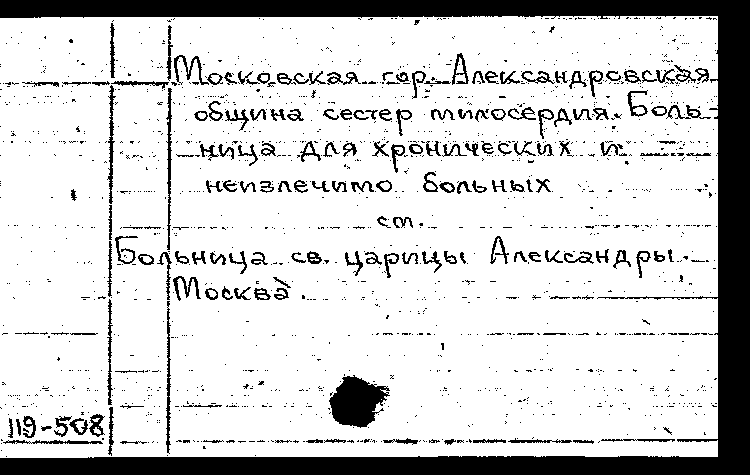 Московская гор. Александровская
община сестер милосердия. Боль-
ница для хронических и
неизлечимо больных
см.
Больница св. царицы Александры.
Москва.
119-508